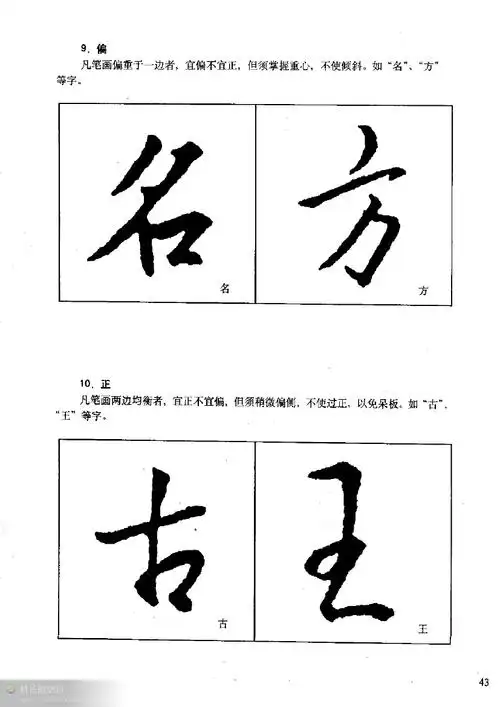 9. 偏
凡笔画偏重于一边者，宜偏不宜正，但须掌握重心，不使倾斜。如“名”、“方”
等字。
名 方
名 方
10. 正
凡笔画两边均衡者，宜正不宜偏，但须稍微偏侧，不使过正，以免呆板。如“古”、
“王”等字。
古 王
古 王
43